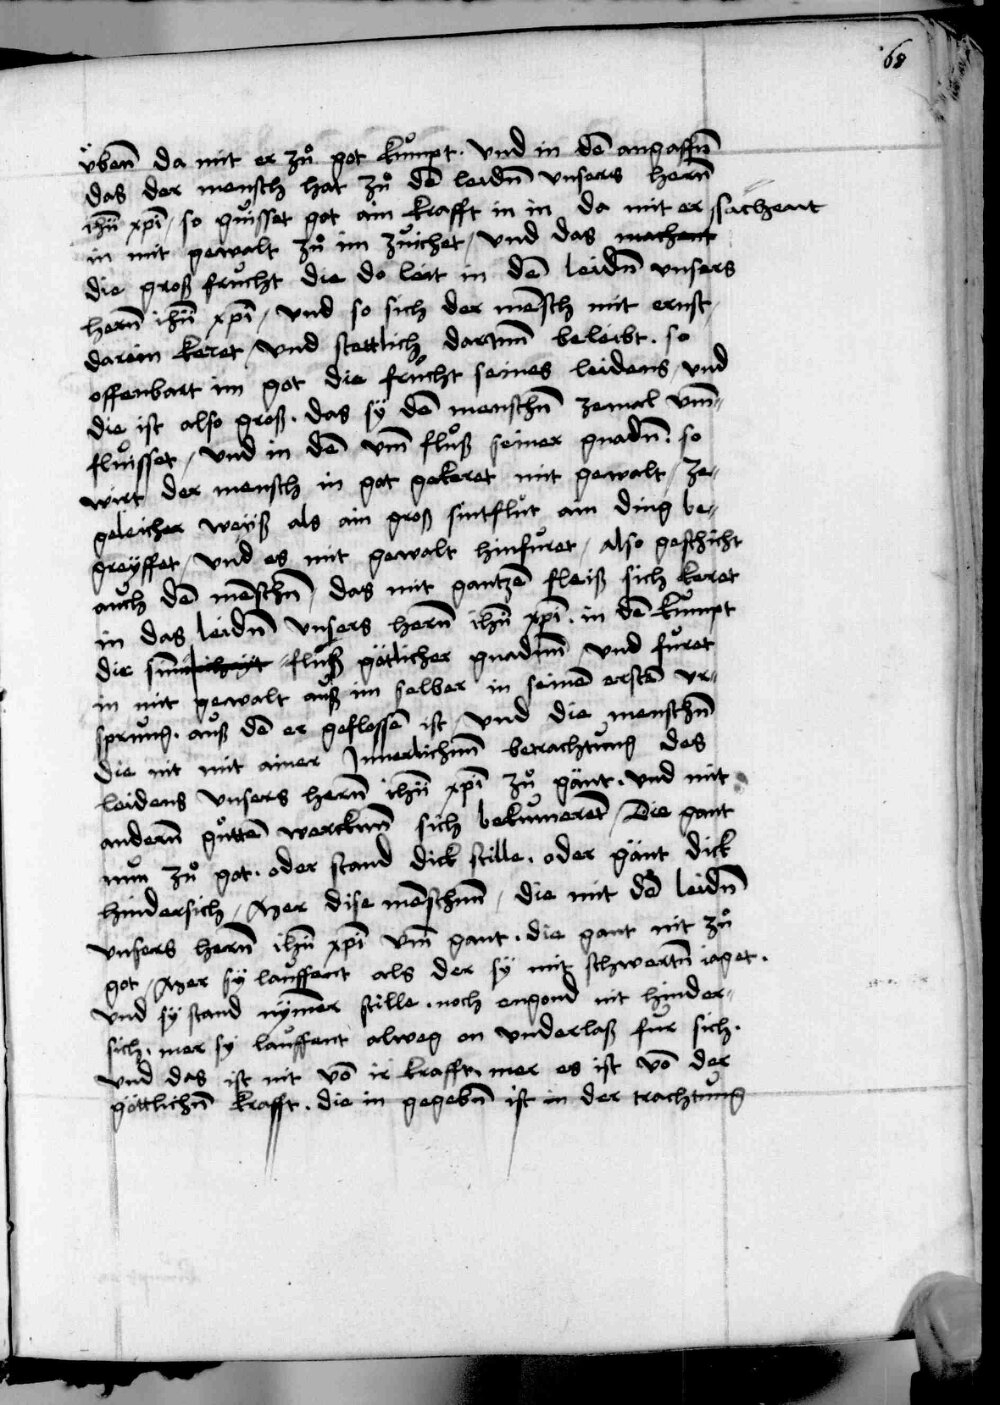 68
v̈benn da mit er zů got kumpt. Vnd in dē angaffn̄
das der mensch hat zů dē leidn̄ vnsers hern̄
ihū xp̄i / so guisset got ain krafft in in da mit er
in mit gewalt zů im zuichet / vnd das machent sachent
die groß frucht die do leit in dē leidn̄ vnsers
hern̄ ihū xp̄i / vnd so sich der mensch mit ernst
darein keret / vnd stettlich dar Inn beleibt. so
offenbart im got die frucht seines leidens / vnd
die ist also groß. das sÿ dē menschn̄ zemal vm̄
fluisset / vnd in dē vm̄ fluß seiner gnadn̄. so
wirt der mensch in got gekeret mit gewalt / ze
geleicher weÿß als ain groß sintflut ain ding be
greÿffet / vnd es mit gewalt hinfuret / also geschicht
auch dē menschn̄ / das mit gantzē fleiß sich keret
in das leidn̄ vnsers hern̄ ihū xp̄i. in dē kumpt
die fluß götlicher gnadnn vnd furet
in mit gewalt auß im selber in seinē erstē vr
sprung. auß dē er geflossē ist / vnd die menschn̄
die nit mit ainer Innerlichnn betrachtung des
leidens vnsers hern̄ ihū xp̄i zů gänt. vnd mit
andern̄ guttē wercknn sich bekumerēt / Die gant
nun zů got. oder stand dick stille. oder gänt dick
hindersich / Aber dise menschnn / die mit dē leidn̄
vnsers hern̄ ihū xp̄i vm̄ gant. die gant nit zů
got / Aber sÿ lauffent als der sÿ mit schwertn̄ iaget.
vnd sÿ stand nym̄er stille. noch engond nit hinder
sich. mer sÿ lauffent alweg on vnderlaß fur sich.
vnd das ist nit vō ir krafft. mer es ist vō der
göttlichn̄ krafft. die in gegebn̄ ist in der trachtung